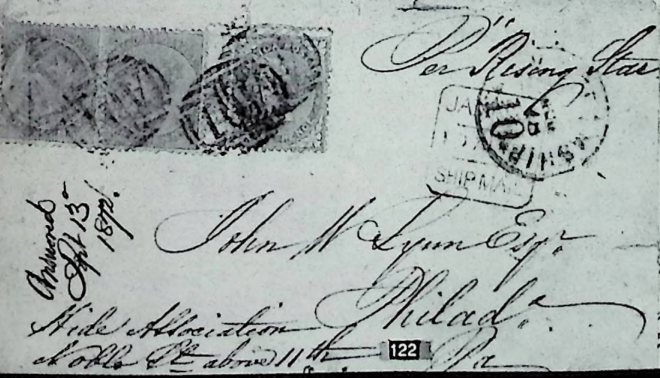 Per "Rising Star
JAM
SHIP MAI
SHIP
10
Answered
Sept 13
1872.
John W Lynn Esqr.
Philada
Hide Association
Noble St. above 11th
Pa
122